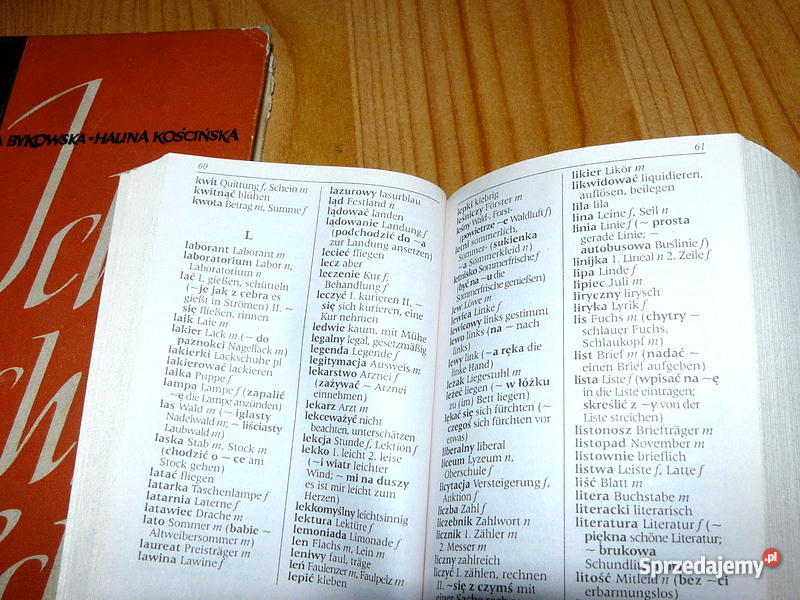 BYKOWSKA • HALINA KOŚCIŃSKA
60
kwit Quittung f, Schein m
kwitnąć blühen
kwota Betrag m, Summe f
L
laborant Laborant m
laboratorium Labor n,
Laboratorium n
lać I. gießen, schütteln
(~je jak z cebra es
gießt in Strömen) II. ~
się fließen, rinnen
laik Laie m
lakier Lack m (~ do
paznokci Nagellack m)
lakierki Lackschuhe pl
lakierować lackieren
lalka Puppe f
lampa Lampe f (zapalić
~ę die Lampe anzünden)
las Wald m (~ iglasty
Nadelwald m; ~ liściasty
Laubwald m)
laska Stab m, Stock m
(chodzić o ~ce am
Stock gehen)
latać fliegen
latarka Taschenlampe f
latarnia Laterne f
latawiec Drache m
lato Sommer m (babie ~
Altweibersommer m)
laureat Preisträger m
lawina Lawine f
lazurowy lasurblau
ląd Festland n
lądować landen
lądowanie Landung f
(podchodzić do ~a
zur Landung ansetzen)
lecieć fliegen
lecz aber
leczenie Kur f,
Behandlung f
leczyć I. kurieren II. ~
się sich kurieren, eine
Kur nehmen
ledwie kaum, mit Mühe
legalny legal, gesetzmäßig
legenda Legende f
legitymacja Ausweis m
lekarstwo Arznei f
(zażywać ~ Arznei
einnehmen)
lekarz Arzt m
lekceważyć nicht
beachten, unterschätzen
lekcja Stunde f, Lektion f
lekko 1. leicht 2. leise
(~i wiatr leichter
Wind; ~ mi na duszy
es ist mir leicht zum
Herzen)
lekkomyślny leichtsinnig
lektura Lektüre f
lemoniada Limonade f
len Flachs m, Lein m
leniwy faul, träge
leń Faulenzer m, Faulpelz m
lepić kleben
61
lepki klebrig
leśniczy Förster m
leśny Wald-, Forst-
(powietrze ~e Waldluft f)
letni sommerlich,
Sommer- (sukienka
~a Sommerkleid n)
letnisko Sommerfrische f
(być na ~u die
Sommerfrische genießen)
lew Löwe m
lewica Linke f
lewicowy links gestimmt
lewo links (na ~ nach
links)
lewy link (~a ręka die
linke Hand)
leżak Liegestuhl m
leżeć liegen (~ w łóżku
zu (im) Bett liegen)
lękać się sich fürchten (~
czegoś sich fürchten vor
etwas)
liberalny liberal
liceum Lyzeum n,
Oberschule f
licytacja Versteigerung f,
Auktion f
liczba Zahl f
liczebnik Zahlwort n
licznik 1. Zähler m
2. Messer m
liczny zahlreich
liczyć I. zählen, rechnen
II. ~się z czymś mit
einer Sache
likier Likör m
likwidować liquidieren,
auflösen, beilegen
lila lila
lina Leine f, Seil n
linia Linie f (~ prosta
gerade Linie; ~
autobusowa Buslinie f)
linijka 1. Lineal n 2. Zeile f
lipa Linde f
lipiec Juli m
liryczny lirysch
liryka Lyrik f
lis Fuchs m (chytry ~
schlauer Fuchs,
Schlaukopf m)
list Brief m (nadać ~
einen Brief aufgeben)
lista Liste f (wpisać na ~ę
in die Liste eintragen;
skreślić z ~y von der
Liste streichen)
listonosz Briefträger m
listopad November m
listownie brieflich
listwa Leiste f, Latte f
liść Blatt m
litera Buchstabe m
literacki literarisch
literatura Literatur f (~
piękna schöne Literatur;
~ brukowa
litość Mitleid n (bez ~ci
erbarmungslos)
Sprzedajemy.pl